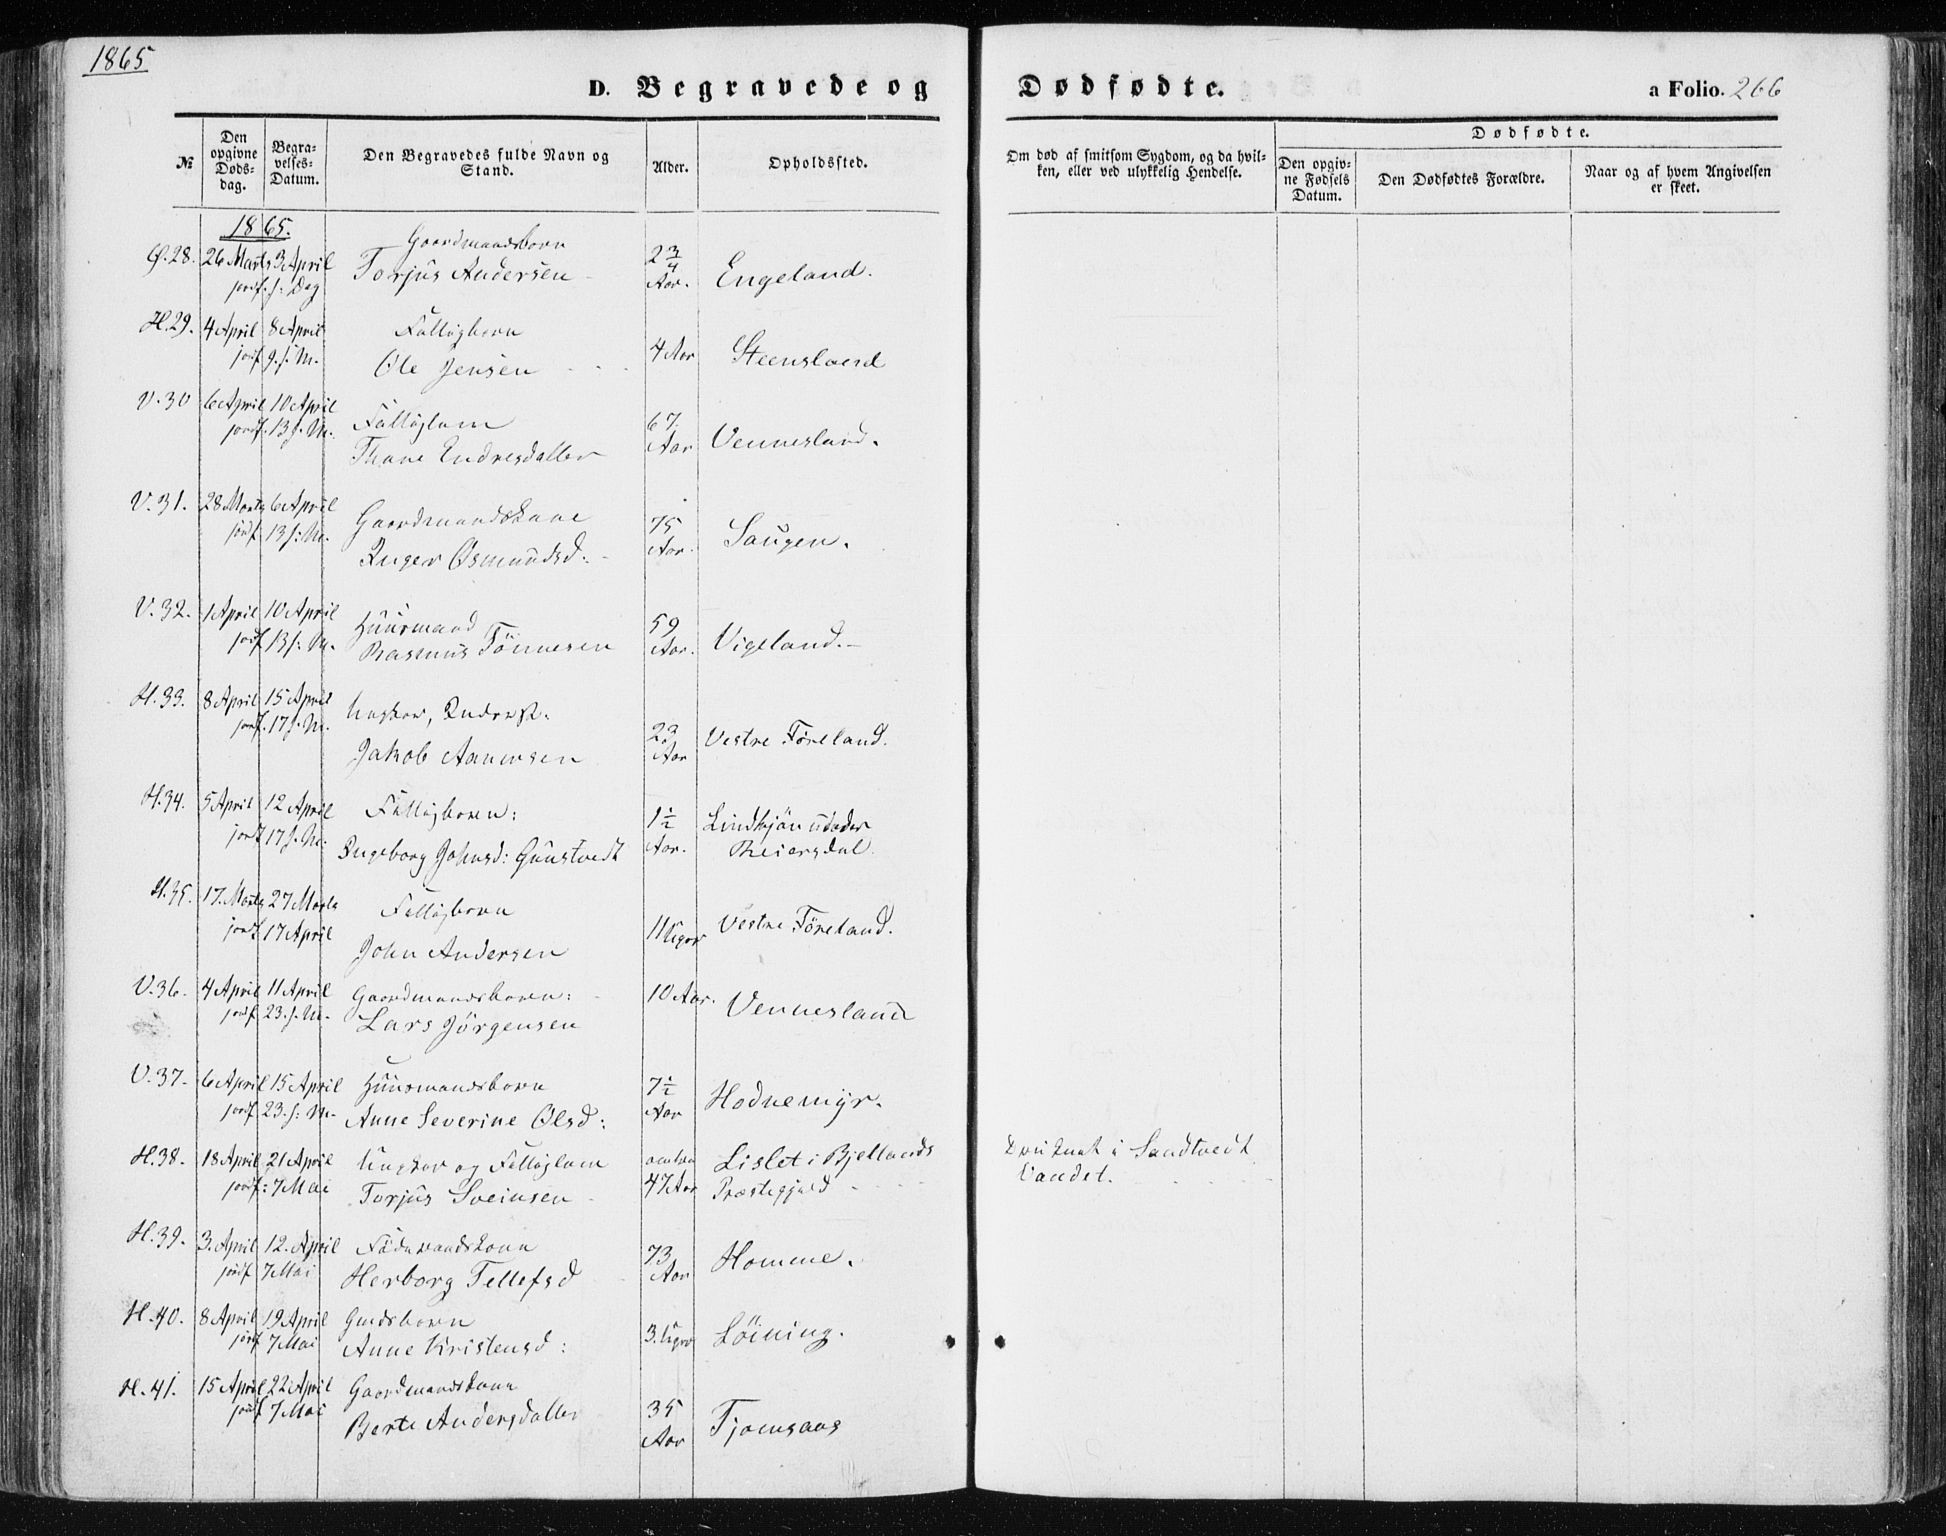 1865
D. Begravede og Dødfødte.
a Folio. 266
№
Den opgivne Døds-dag.
Begra-velses-Datum.
Den Begravedes fulde Navn og Stand.
Alder.
Opholdssted.
Om død af smitsom Sygdom, og da hvil-ken, eller ved ulykkelig Hendelse.
Dødfødte.
Den opgiv-ne Fødsels Datum.
Den Dødfødtes Forældre.
Naar og af hvem Angivelsen er skeet.
1865.
Ø.28. 26 Marts 3 April Gaardmandsbarn 2 3/4
jordf. s: Dag Torjus Andersen Aar. Engeland.
H.29. 4 April 8 April Fattigbarn
jordf. 9. s. M. Ole Jensen 4 Aar Steensland
V.30 6 April 10 April Fattiglem 67.
jordf. 13 s. M. Thone Endresdatter Aar Vennesland.
V.31. 28 Marts 6 April Gaardmandskone 75
jordf. 13 s: M. Inger Osmundsd: Aar. Saugen.
V.32. 1 April 10 April Huusmand 59
jordf. 13 s: M. Rasmus Tönnesen Aar. Vigeland.
H.33. 8 April 15 April Ungkar,
jordf. 17 s. M. Jakob Aanensen 23 Aar Vestre Föreland.
H.34. 5 April 12 April Fattigbarn: 1 1/2 Lindkjön under
jordf. 17 s. M. Ingeborg Johnsd: Guustvedt Aar. Reiersdal.
H.35. 17. Marts 27 Marts Fattigbarn
jordf. 17 April John Andersen 11 Uger Vestre Föreland.
V.36. 4 April 11 April Gaardmandsbarn: 10 Aar.
jordf. 23. s. M. Lars Jörgensen Vennesland
V.37. 6 April 15 April Huusmandsbarn 7 1/2
jordf. 23. s: M. Anne Severine Olsd: Aar Hodnemyr.
H.38. 18 April 21 April Ungkar og Fattiglem omtrn Lislet i Bjellands Druknet i Sandtvedt
jordf: 7 Mai Torjus Sveinsen 47 Aar Præstegjeld Vandet.
H.39. 3. April 12. April Föderaadskone 73
jordf. 7 Mai Herborg Tellefsd Aar Homme.
H.40. 8 April 19 April Gmdsbarn
jordf. 7 Mai Anne Kristensd: 3. Uger Löining.
H.41. 15 April 22 April Gaardmandskone 35
jordf. 7 Mai Berte Andersdatter Aar Tjomsaas